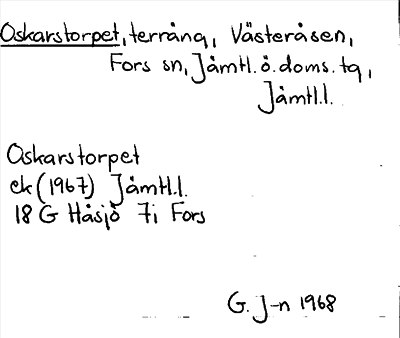 Oskarstorpet, terräng, Västeråsen,
Fors sn, Jämtl. ö. doms. tg,
Jämtl.l.
Oskarstorpet
ek (1967) Jämtl.l.
18 G Håsjö 7i Fors
G. J-n 1968